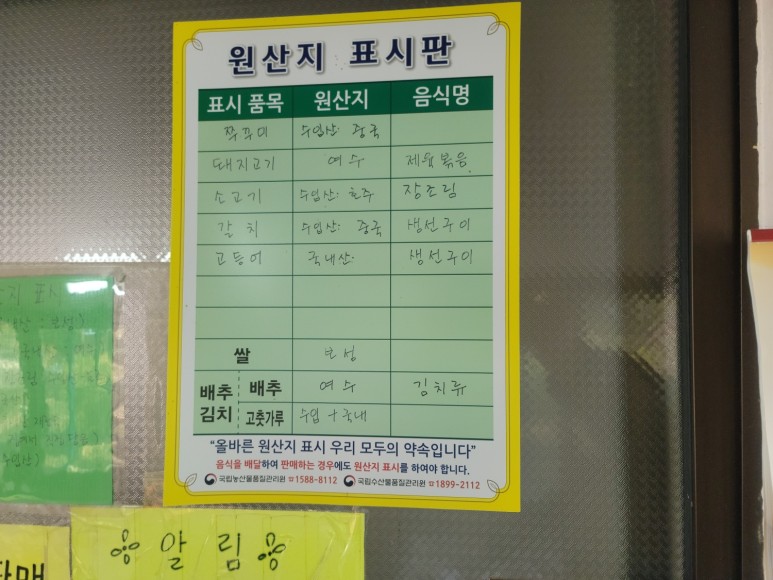 원산지 표시판
표시 품목 원산지 음식명
쭈꾸미 수입산: 중국
돼지고기 여수 제육볶음
소고기 수입산: 호주 장조림
갈치 수입산: 중국 생선구이
고등어 국내산 생선구이
쌀 보성
배추김치 배추 여수 김치류
고춧가루 수입+국내
"올바른 원산지 표시 우리 모두의 약속입니다"
음식을 배달하여 판매하는 경우에도 원산지 표시를 하여야 합니다.
국립농산물품질관리원 ☎1588-8112 국립수산물품질관리원 ☎1899-2112
지 표시
알림
판매